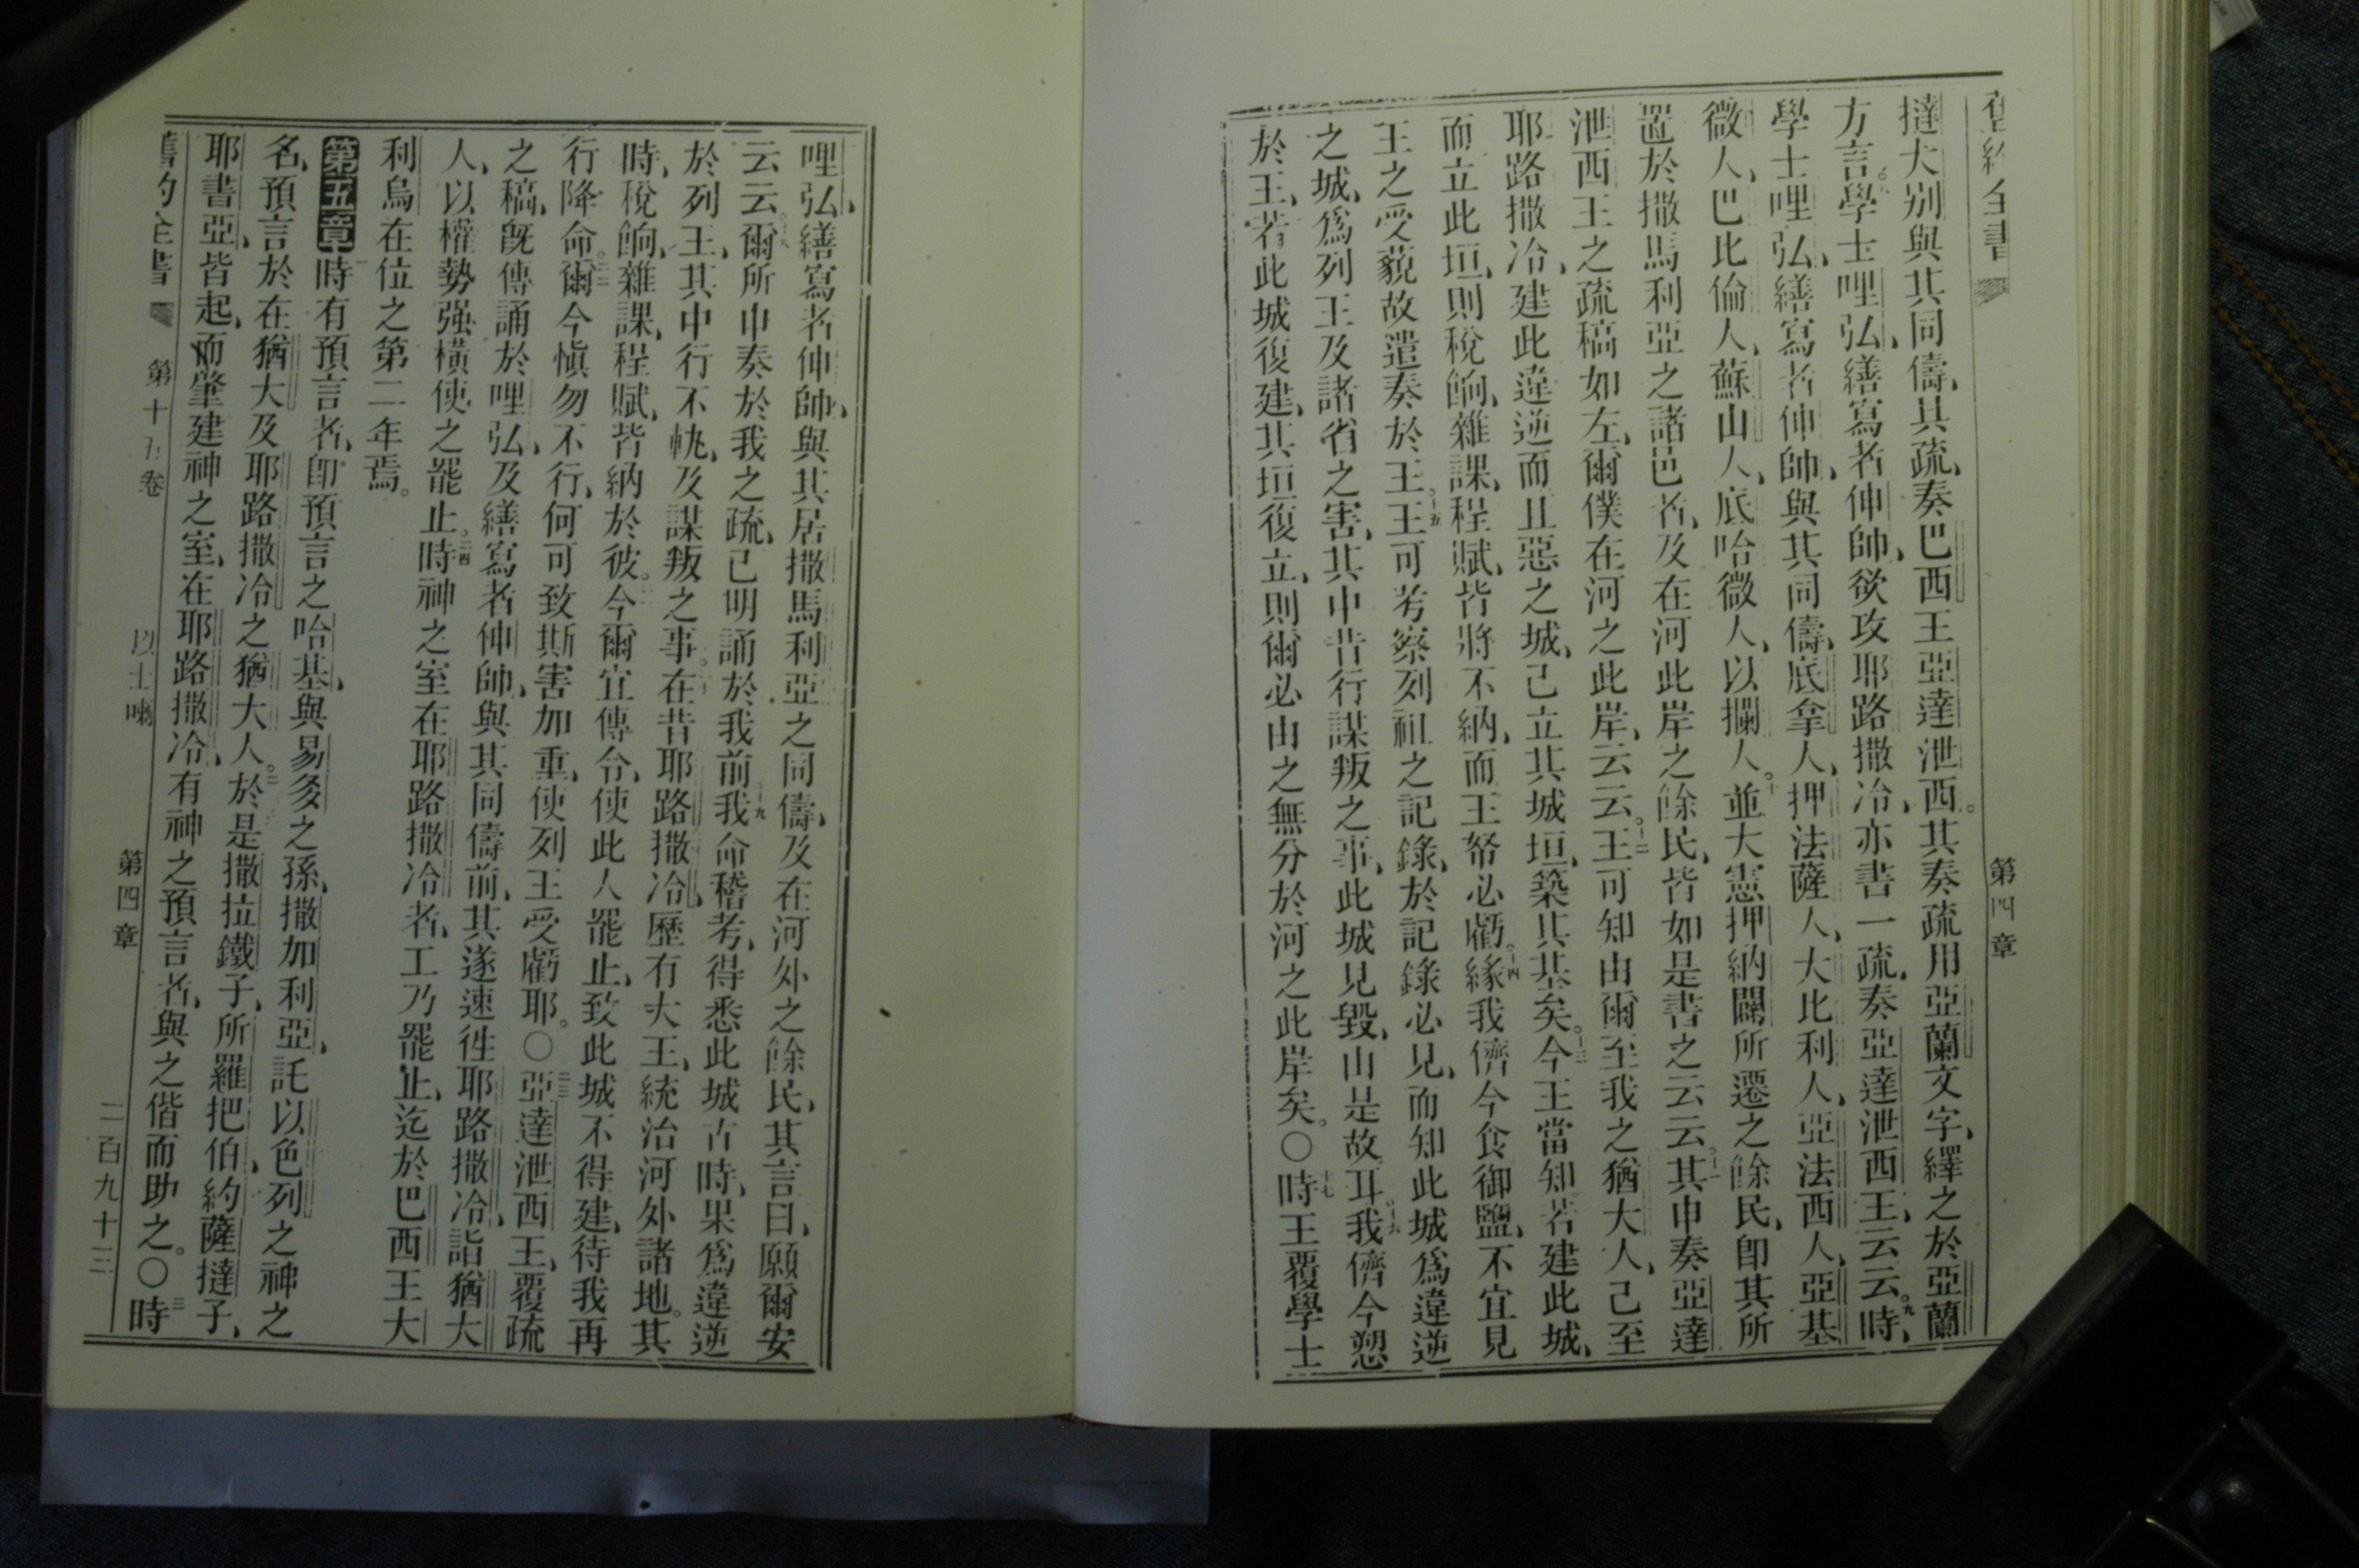 舊約全書 第四章
撻大別與其同儔、其疏、奏巴西王亞達泄西。其奏疏用亞蘭文字、繹之於亞蘭
方言。八學士哩弘、繕寫者伸帥、欲攻耶路撒冷、亦書一疏、奏亞達泄西王、云云。九時、
學士哩弘、繕寫者伸帥、與其同儔、底拿人、押法薩人、大比利人、亞法西人、亞基
微人、巴比倫人、蘇山人、底哈微人、以攔人。十並大憲押納闊所遷之餘民、卽其所
置於撒馬利亞之諸邑者、及在河此岸之餘民、皆如是書之云云。十一其申奏亞達
泄西王之疏稿如左、爾僕在河之此岸、云云。十二王可知由爾至我之猶大人、已至
耶路撒冷、建此違逆而且惡之城、已立其城垣、築其基矣。十三今王當知若建此城、
而立此垣、則稅餉、雜課、程賦、皆將不納、而王帑必虧。十四緣我儕今食御鹽、不宜見
王之受藐故遣奏於王。十五王可考察列祖之記錄、於記錄必見、而知此城爲違逆
之城、爲列王及諸省之害、其中昔行謀叛之事、此城見毀、由是故耳。十六我儕今愬
於王、若此城復建、其垣復立、則爾必由之無分於河之此岸矣。○十七時王覆學士
哩弘、繕寫者伸帥、與其居撒馬利亞之同儔、及在河外之餘民、其言曰、願爾安
云云。十八爾所申奏於我之疏、已明誦於我前。十九我命稽考、得悉此城古時、果爲違逆
於列王、其中行不軌、及謀叛之事。二十在昔耶路撒冷、歷有大王、統治河外諸地。其
時、稅餉、雜課、程賦、皆納於彼。二一今爾宜傳令、使此人罷止、致此城不得建、待我再
行降命。二二爾今愼勿不行、何可致斯害加重、使列王受虧耶。○二三亞達泄西王、覆疏
之稿、旣傳誦於哩弘、及繕寫者伸帥、與其同儔前、其遂速徃耶路撒冷、詣猶大
人、以權勢强橫使之罷止。二四時神之室在耶路撒冷者、工乃罷止、迄於巴西王大
利烏在位之第二年焉。
第五章 一時有預言者、卽預言之哈基、與易多之孫、撒加利亞、託以色列之神之
名、預言於在猶大及耶路撒冷之猶大人。二於是撒拉鐵子、所羅把伯、約薩撻子、
耶書亞、皆起、而肇建神之室、在耶路撒冷、有神之預言者、與之偕而助之。○三時
舊約全書 第十五卷 以士喇 第四章 二百九十三